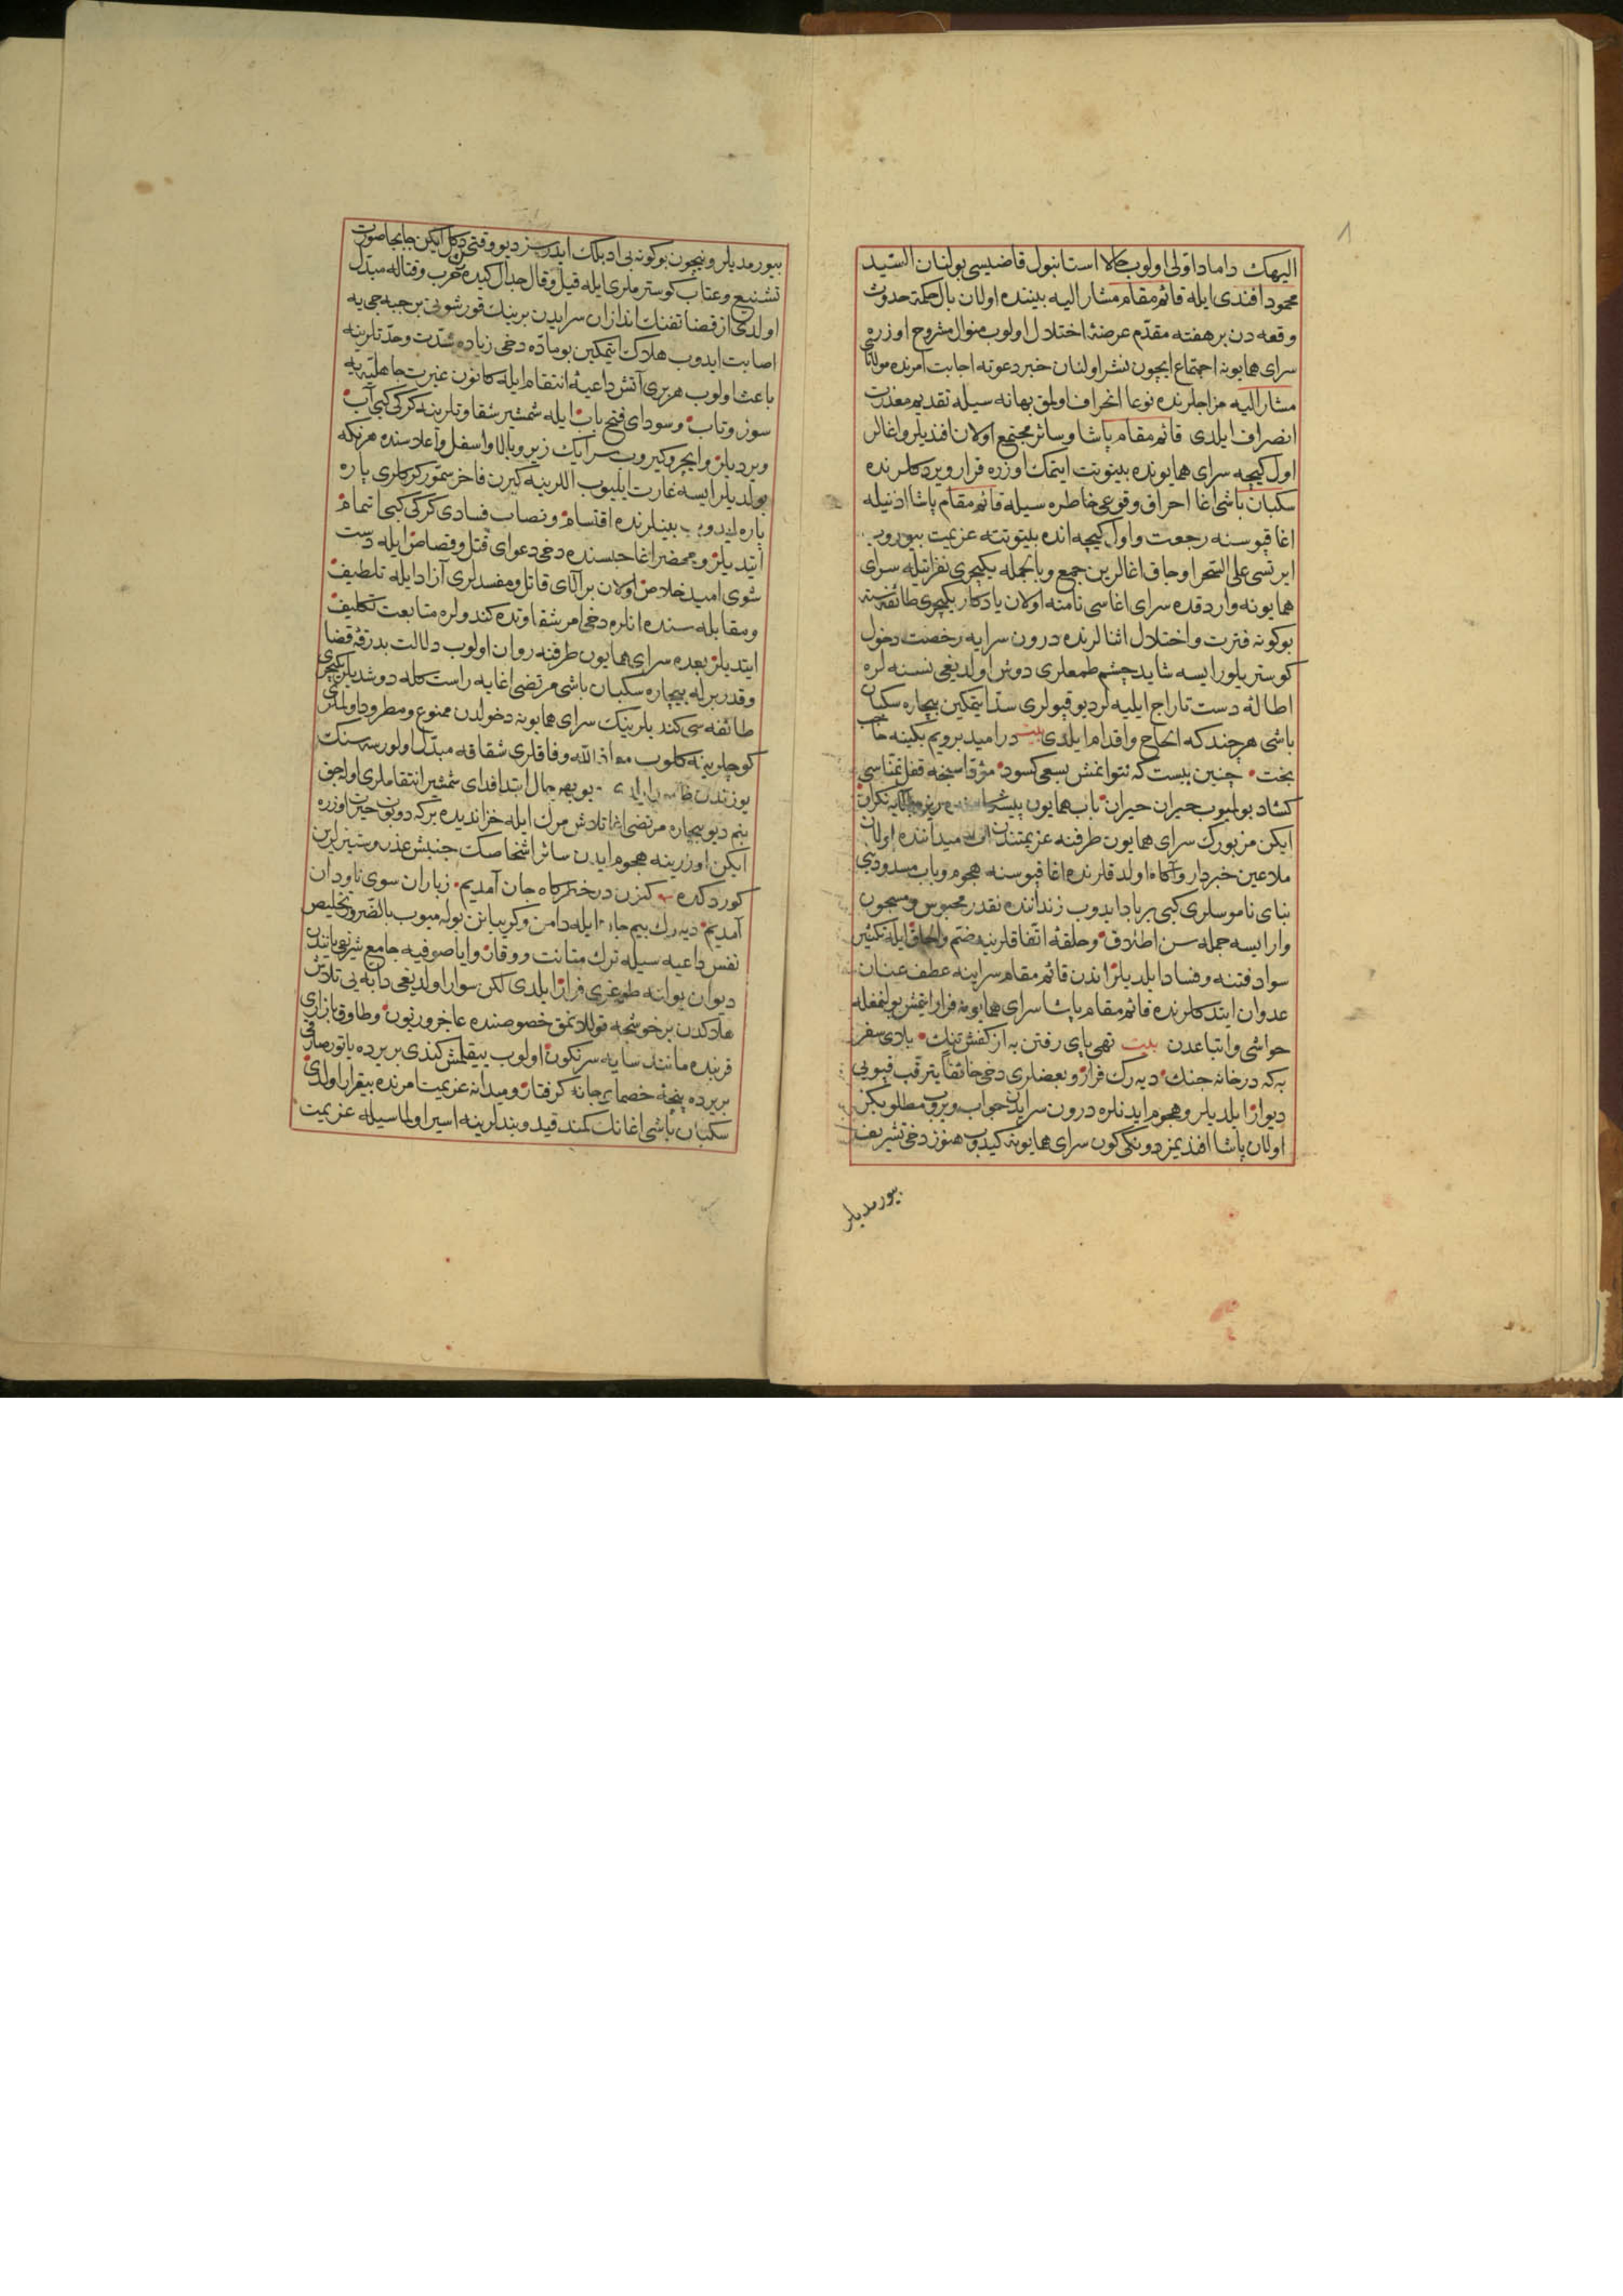 اليهك داماد اولى اولوب حالا استانبول قاضيسى بولنان السيد
محمود افندى ايله قائم مقام مشار اليه بيننده اولان بال حكمة حدوث
وقعه دن بر هفته مقدم عرضۀ اختلال اولوب منوال مشروح اوزره
سراى همايونه اجتماع ايچون نشر اولنان خبر دعوته اجابت امرنده مولانا
مشار اليه مزاجلرنده نوعا انحراف اولمق بهانه سيله تقديم معذرت
انصراف ايلدى قائم مقام پاشا وسائر مجتمع اولان افنديلر واغالر
اول كيجه سراى همايونده بيتوتت ايتمك اوزره قرار ويردكلرنده
سكبان باشى اغا احراق وقوعى خاطره سيله قائم مقام پاشا اذنيله
اغا قپوسنه رجعت واول كيجه انده بيتوتته عزيمت بيوروب
ايرتسى على السحر اوجاق اغالرين جمع وبالجمله يكيچرى نفراتيله سراى
همايونه واردقده سراى اغاسى نامنه اولان يادكار يكيچرى طائفه سنه
بوكونه فترت واختلال اثنالرنده درون سرايه رخصت دخول
كوستريلور ايسه شايد چشم طمعلرى دوش اولديغى نسنه لره
اطالۀ دست تاراج ايليه لر ديو قپولرى سد ايتمكين بيچاره سكبان
باشى هر چند كه الحاح واقدام ايلدى بيت در اميد برويم بكينه حاجب
بخت چنين نيست كه نتوانمش بسعى كسود مؤقا سنجه قفل تمناسى
كشاد بولميوب حيران حيران باب همايون پيشكاهنده
ايكن مزبورك سراى همايون طرفنه عزيمتندن ات ميداننده اولان
ملاعين خبردار وآكاه اولدقلرنده اغا قپوسنه هجوم وباب مسدودينى
بناى ناموسلرى كبى برباد ايدوب زنداننده نقدر محبوس ومسجون
وار ايسه جمله سن اطلاق وحلقۀ اتفاقلرينه ضم والحاق ايله تكثير
سواد فتنه وفساد ايلديلر اندن قائم مقام سراينه عطف عنان
عدوان ايتدكلرنده قائم مقام پاشا سراى همايونه فرار ايتمش بولنمغله
حواشى واتباعدن بيت تهى پاى رفتن به از كفش تنك بلاى سفر
به كه در خانه جنك ديه رك فرار وبعضلرى دخى خائفا يترقب قپويى
ديوار ايلديلر وهجوم ايدنلره درون سرايدن جواب ويروب مطلوبكز
اولان پاشا افنديمز دونكى كون سراى همايونه كيدوب هنوز دخى تشريف
بيورمديلر
بيورمديلر ونيچون بوكونه بى ادبلك ايدرسز ديو وقتى دكل ايكن جابجا صورت
تشنيع وعتاب كوسترملرى ايله قيل وقال جدال كيده رك حرب وقتاله مبدل
اولدى از قضا تفنك اندازان سرايدن برينك قورشونى بر جبه جى يه
اصابت ايدوب هلاك ايتمكين بو ماده دخى زياده شدت وحدتلرينه
باعث اولوب هر برى آتش داعيۀ انتقام ايله كانون غيرت جاهليه يه
سوز وتاب وسوداى فتح باب ايله شمشير شقاوتلرينه كركى كبى آب
ويرديلر وايچرو كيروب سرايك زير وبالا واسفل واعلاسنده هر نكه
بولديلر ايسه غارت ايليوب اللرينه كيرن فاخر سمور كركلرى پاره
پاره ايدوب بينلرنده اقتسام ونصاب فسادى كركى كبى اتمام
ايتديلر ومحضر اغا حبسنده دخى دعواى قتل وقصاص ايله دست
شوى اميد خلاص اولان بر الاى قاتل ومفسدلرى آزاد ايله تلطيف
ومقابله سنده انلره دخى امر شقاوتده كندولره متابعت تكليف
ايتديلر بعده سراى همايون طرفنه روان اولوب دلالت بدرقۀ قضا
وقدر برله بيچاره سكبان باشى مرتضى اغايه راست كله دوشديلر يكيچرى
طائفه سى كنديلرينك سراى همايونه دخولدن ممنوع ومطرود اولملرى
كوچلرينه كلوب معاذ الله وفاقلرى شقاقه مبدل اولورسه سنك
يوزكدن بو بهر حال ابتدا فداى شمشير انتقاملرى اوله جق
بنم ديو بيچاره مرتضى اغا تلاش مرك ايله خزانديده برك دونوب حيرت اوزره
ايكن اوزرينه هجوم ايدن سائر اشخاصك جنبش غدر وستيزلرين
كوردكده كزين درختر كاه جان آمديم ز باران سوى ناودان
آمديم ديه رك بيم جان ايله دامن وكريبانن بوله ميوب بالضرور تخليص
نفس داعيه سيله ترك متانت ووقار واياصوفيه جامع شريفى ياننده
ديوان يولنه طوغرى فرار ايلدى لكن سوار اولديغى دابه يى تلاش
هلاكدن بر خوشجه قوللانمق خصوصنده عاجز وزبون وطاوق بازارى
قربنده مانند سايه سرنكون اولوب ييقلمش كندى بر يرده ياتور صارغى
بر يرده پنجۀ خصماى جانه كرفتار وميدانه عزيمت امرنده بيقرار اولدى
سكبان باشى اغانك كمند قيد وبندلرينه اسير اولماسيله عزيمت